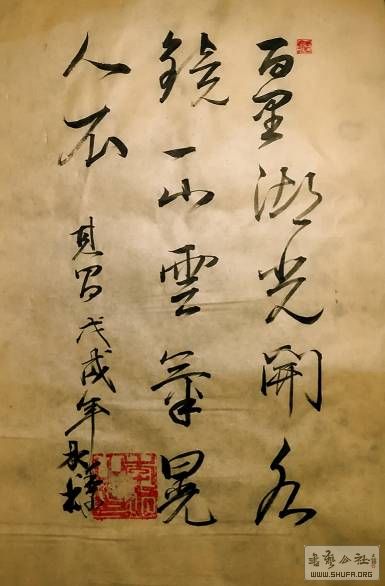 百里湖光開水
鏡一山雲氣晃
人衣
戊戌年
書藝公社
WWW.SHUFA.ORG